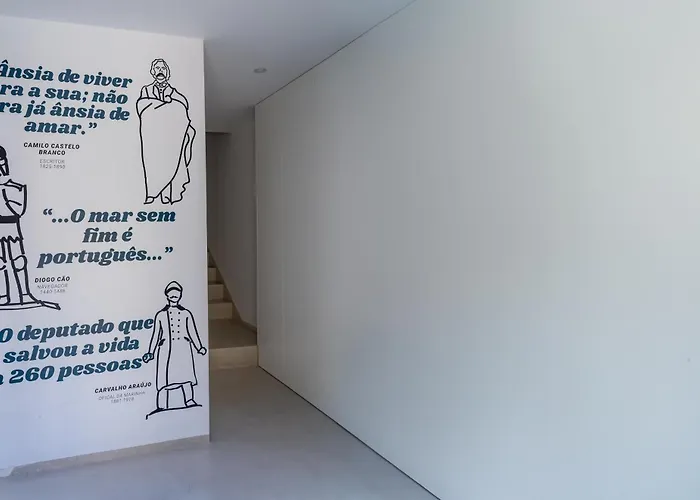 ânsia de viver
ra a sua; não
ra já ânsia de
amar.”
CAMILO CASTELO
BRANCO
ESCRITOR
1825-1890
“...O mar sem
fim é
português...”
DIOGO CÃO
NAVEGADOR
1440-1486
O deputado que
salvou a vida
a 260 pessoas
CARVALHO ARAÚJO
OFICIAL DA MARINHA
1881-1918